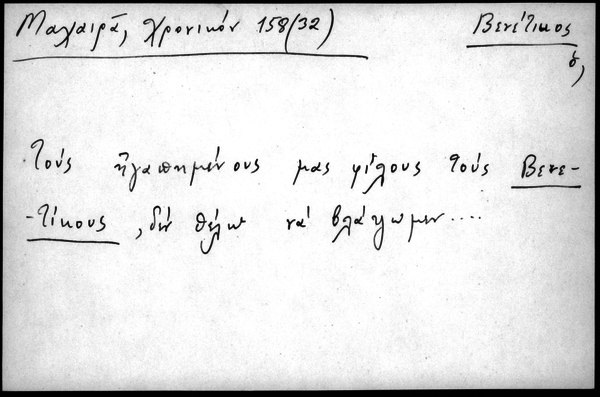 Μαχαιρᾶ, Χρονικόν 158(32)
Βενέτικος
ὁ,
Τούς ἠγαπημένους μας φίλους τούς Βενε-
-τίκους, δέν θέλω νά βλάψωμεν....